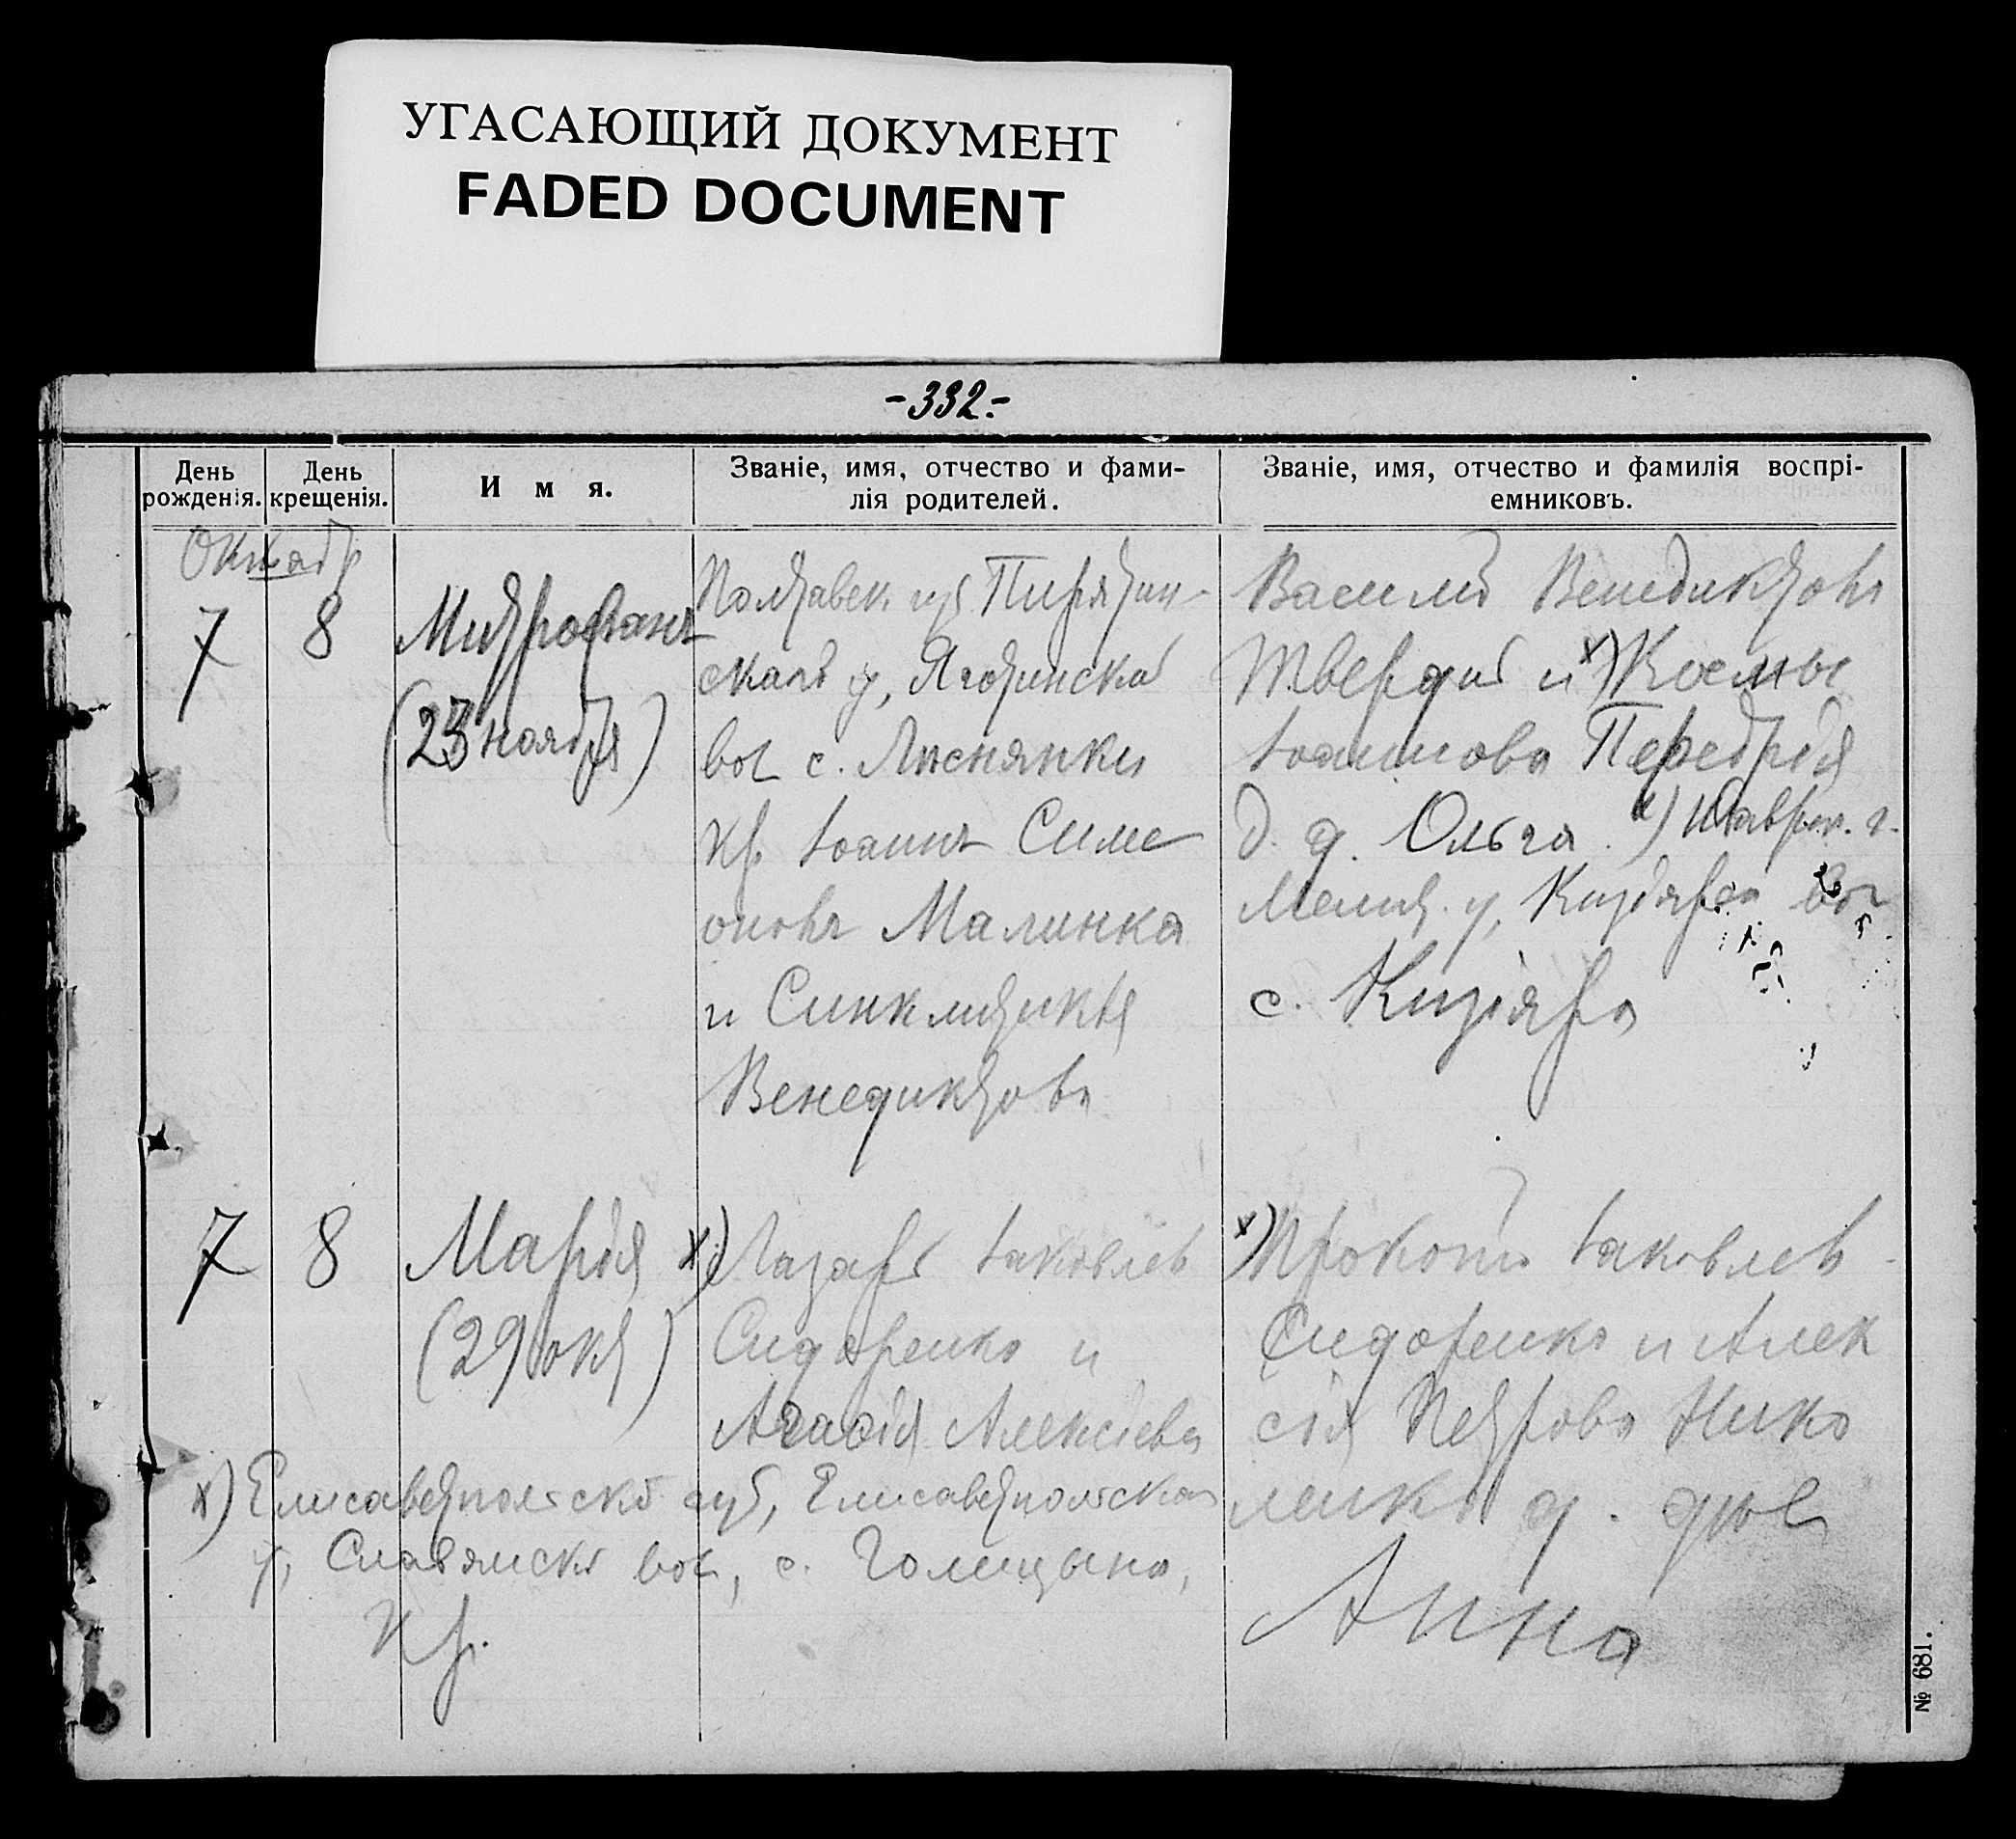 УГАСАЮЩИЙ ДОКУМЕНТ
FADED DOCUMENT
-332.-
День рожденія.
День крещенія.
И м я.
Званіе, имя, отчество и фами-
лія родителей.
Званіе, имя, отчество и фамилія воспрі-
емниковъ.
Октябр
7
8
Митрофанъ
(23 ноября)
Полтавск. губ Пирятин-
скаго у, Яготинской
вол с. Лиснянки
кр. Іоаннъ Симе
оновъ Малинка
и Синклитикія
Венедиктова
Василій Венедиктовъ
Твердый и х) Космы
Іоаннова Передрія
д. д. Ольга. х) Таврич. г.
Мелит. у, Кизіярск вол
с. Кизіяра
7
8
Марія
(29 окт)
х) Лазарь Іаковлев
Сидоренко и
Агафія Алексіева
х) Прокопій Іаковлев
Сидоренко и Алек
сія Петрова Нико
ленко д. дочь
Анна
х) Елисаветпольской губ, Елисаветпольскаго
у, Славянской вол, с. Голицыно,
кр.
№ 681.